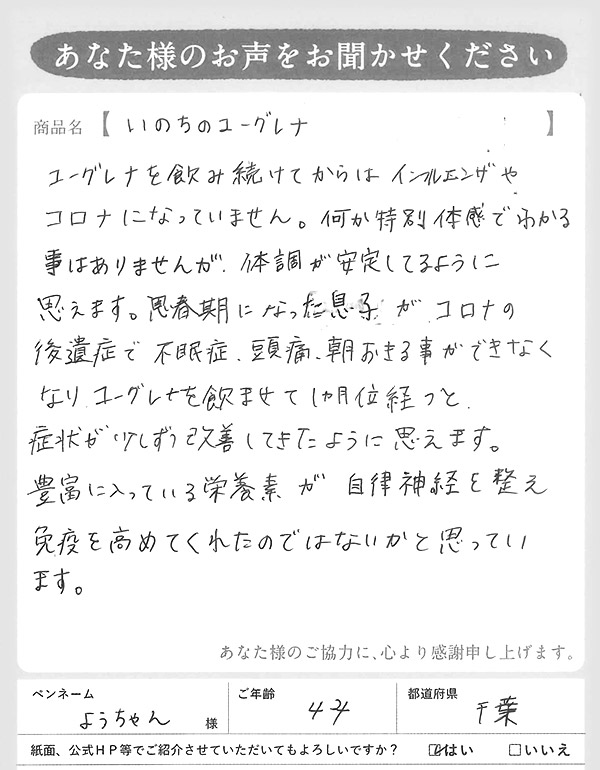 あなた様のお声をお聞かせください
商品名【いのちのユーグレナ】
ユーグレナを飲み続けてからはインフルエンザや
コロナになっていません。何か特別体感でわかる
事はありませんが、体調が安定してるように
思えます。思春期になった息子がコロナの
後遺症で不眠症、頭痛、朝おきる事ができなく
なり、ユーグレナを飲ませて1ヶ月位経つと
症状が少しずつ改善してきたように思えます。
豊富に入っている栄養素が自律神経を整え
免疫を高めてくれたのではないかと思ってい
ます。
あなた様のご協力に、心より感謝申し上げます。
ペンネーム ようちゃん 様 ご年齢 44 都道府県 千葉
紙面、公式HP等でご紹介させていただいてもよろしいですか? ☑はい □いいえ